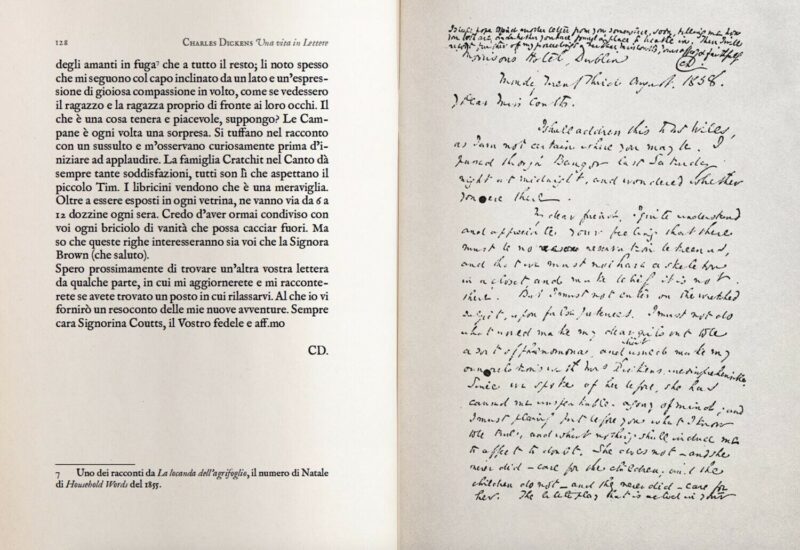 128
CHARLES DICKENS Una vita in Lettere
degli amanti in fuga⁷ che a tutto il resto; li noto spesso
che mi seguono col capo inclinato da un lato e un'espres-
sione di gioiosa compassione in volto, come se vedessero
il ragazzo e la ragazza proprio di fronte ai loro occhi. Il
che è una cosa tenera e piacevole, suppongo? Le Cam-
pane è ogni volta una sorpresa. Si tuffano nel racconto
con un sussulto e m'osservano curiosamente prima d'i-
niziare ad applaudire. La famiglia Cratchit nel Canto dà
sempre tante soddisfazioni, tutti son lì che aspettano il
piccolo Tim. I libricini vendono che è una meraviglia.
Oltre a essere esposti in ogni vetrina, ne vanno via da 6 a
12 dozzine ogni sera. Credo d'aver ormai condiviso con
voi ogni briciolo di vanità che possa cacciar fuori. Ma
so che queste righe interesseranno sia voi che la Signora
Brown (che saluto).
Spero prossimamente di trovare un'altra vostra lettera
da qualche parte, in cui mi aggiornerete e mi racconte-
rete se avete trovato un posto in cui rilassarvi. Al che io vi
fornirò un resoconto delle mie nuove avventure. Sempre
cara Signorina Coutts, il Vostro fedele e aff.mo
CD.
7 Uno dei racconti da La locanda dell'agrifoglio, il numero di Natale
di Household Words del 1855.
another letter from you somewhere, soon, telling me how
you both are, and whether you have found a place to breathe in. Then I will
report further of my proceedings
CD.
Morrisons Hotel, Dublin
Monday Twenty Third August, 1858.
My Dear Miss Coutts.
I shall address this to Wills,
as I am not certain where you may be. I
passed through Bangor last Saturday
night at midnight, and wondered whether
you were there.
My dear friend, I quite understand
and appreciate your feeling that there
must be no reservation between us,
and that we must not have a skeleton
in a closet and make belief it is not
there. But I must not enter on the wretched
subject, upon false pretences. I must not do
what would make my dear girls out to be
a sort of and would make my
own relations with Mrs Dickens, incomprehensible.
Since we spoke of her before, she has
caused me unspeakable agony of mind; and
I must plainly put before you what I know
to be true, and what nothing shall induce me
to affect to doubt. She does not – and she
never did – care for the children; and the
children do not – and they never did – care for
her. The little play that is acted in your